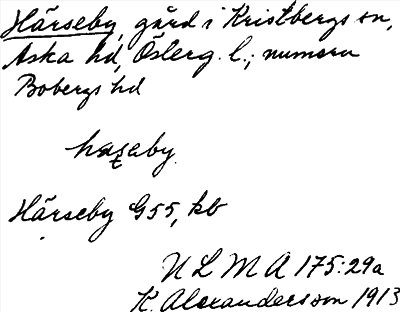 Härseby, gård i Kristbergs sn,
Aska hd, Österg. l.; numera
Bobergs hd
hæʂeby.
Härseby G55, kb
ULMA 175:29a
K. Alexandersson 1913